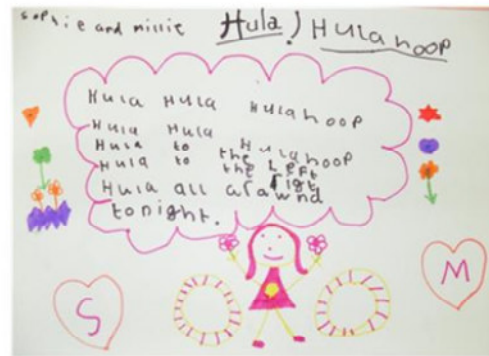 sophie and millie
Hula! Hulahoop
Hula Hula Hulahoop
Hula Hula Hulahoop
Hula to the Left
Hula to the rigt
Hula all arawnd
tonight.
S
M